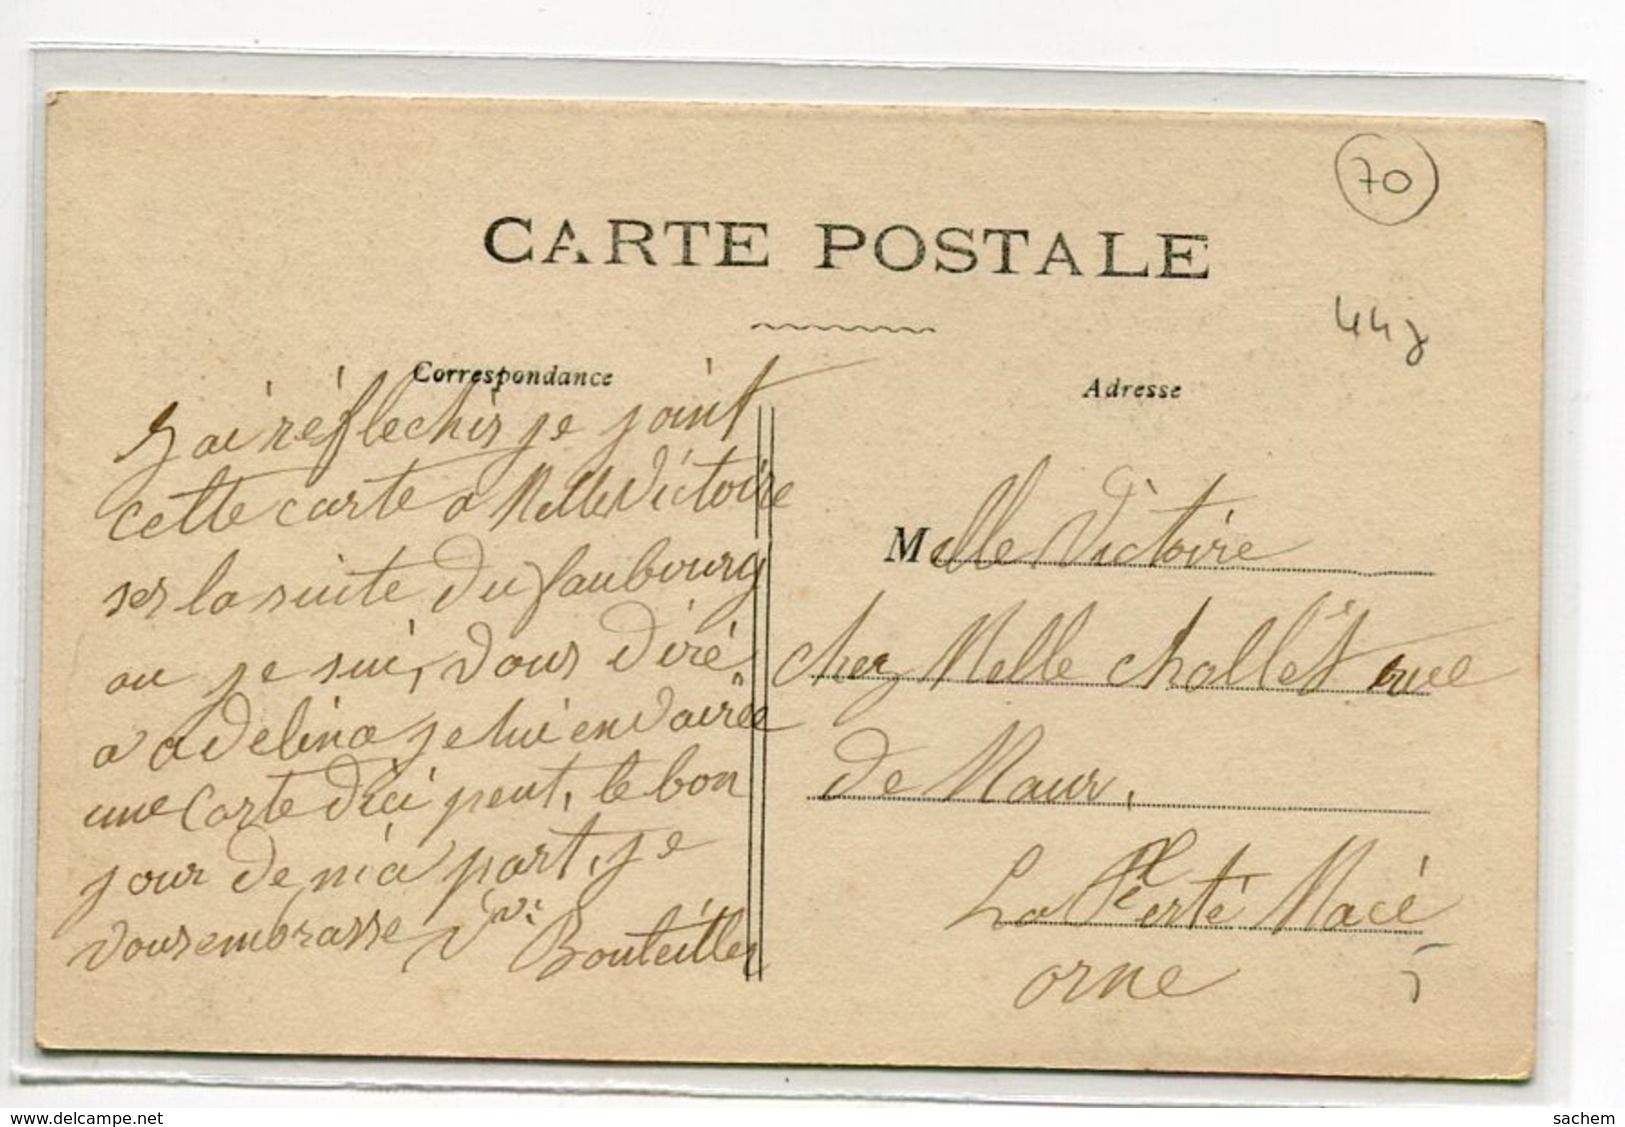 CARTE POSTALE
70
Correspondance
Adresse
J ai réflechis je joint
cette carte a Melle Victoire
ses la suite du faubourg
ou je sui, vous diré
a adelina je lui envairëe
une carte dici peut, le bon
jour de ma part, je
vousembrasse Vve Bouteiller
Melle Victoire
chez Melle Chollet rue
de Maur,
La Ferté Macé
orne
5
delcampe.net
sachem